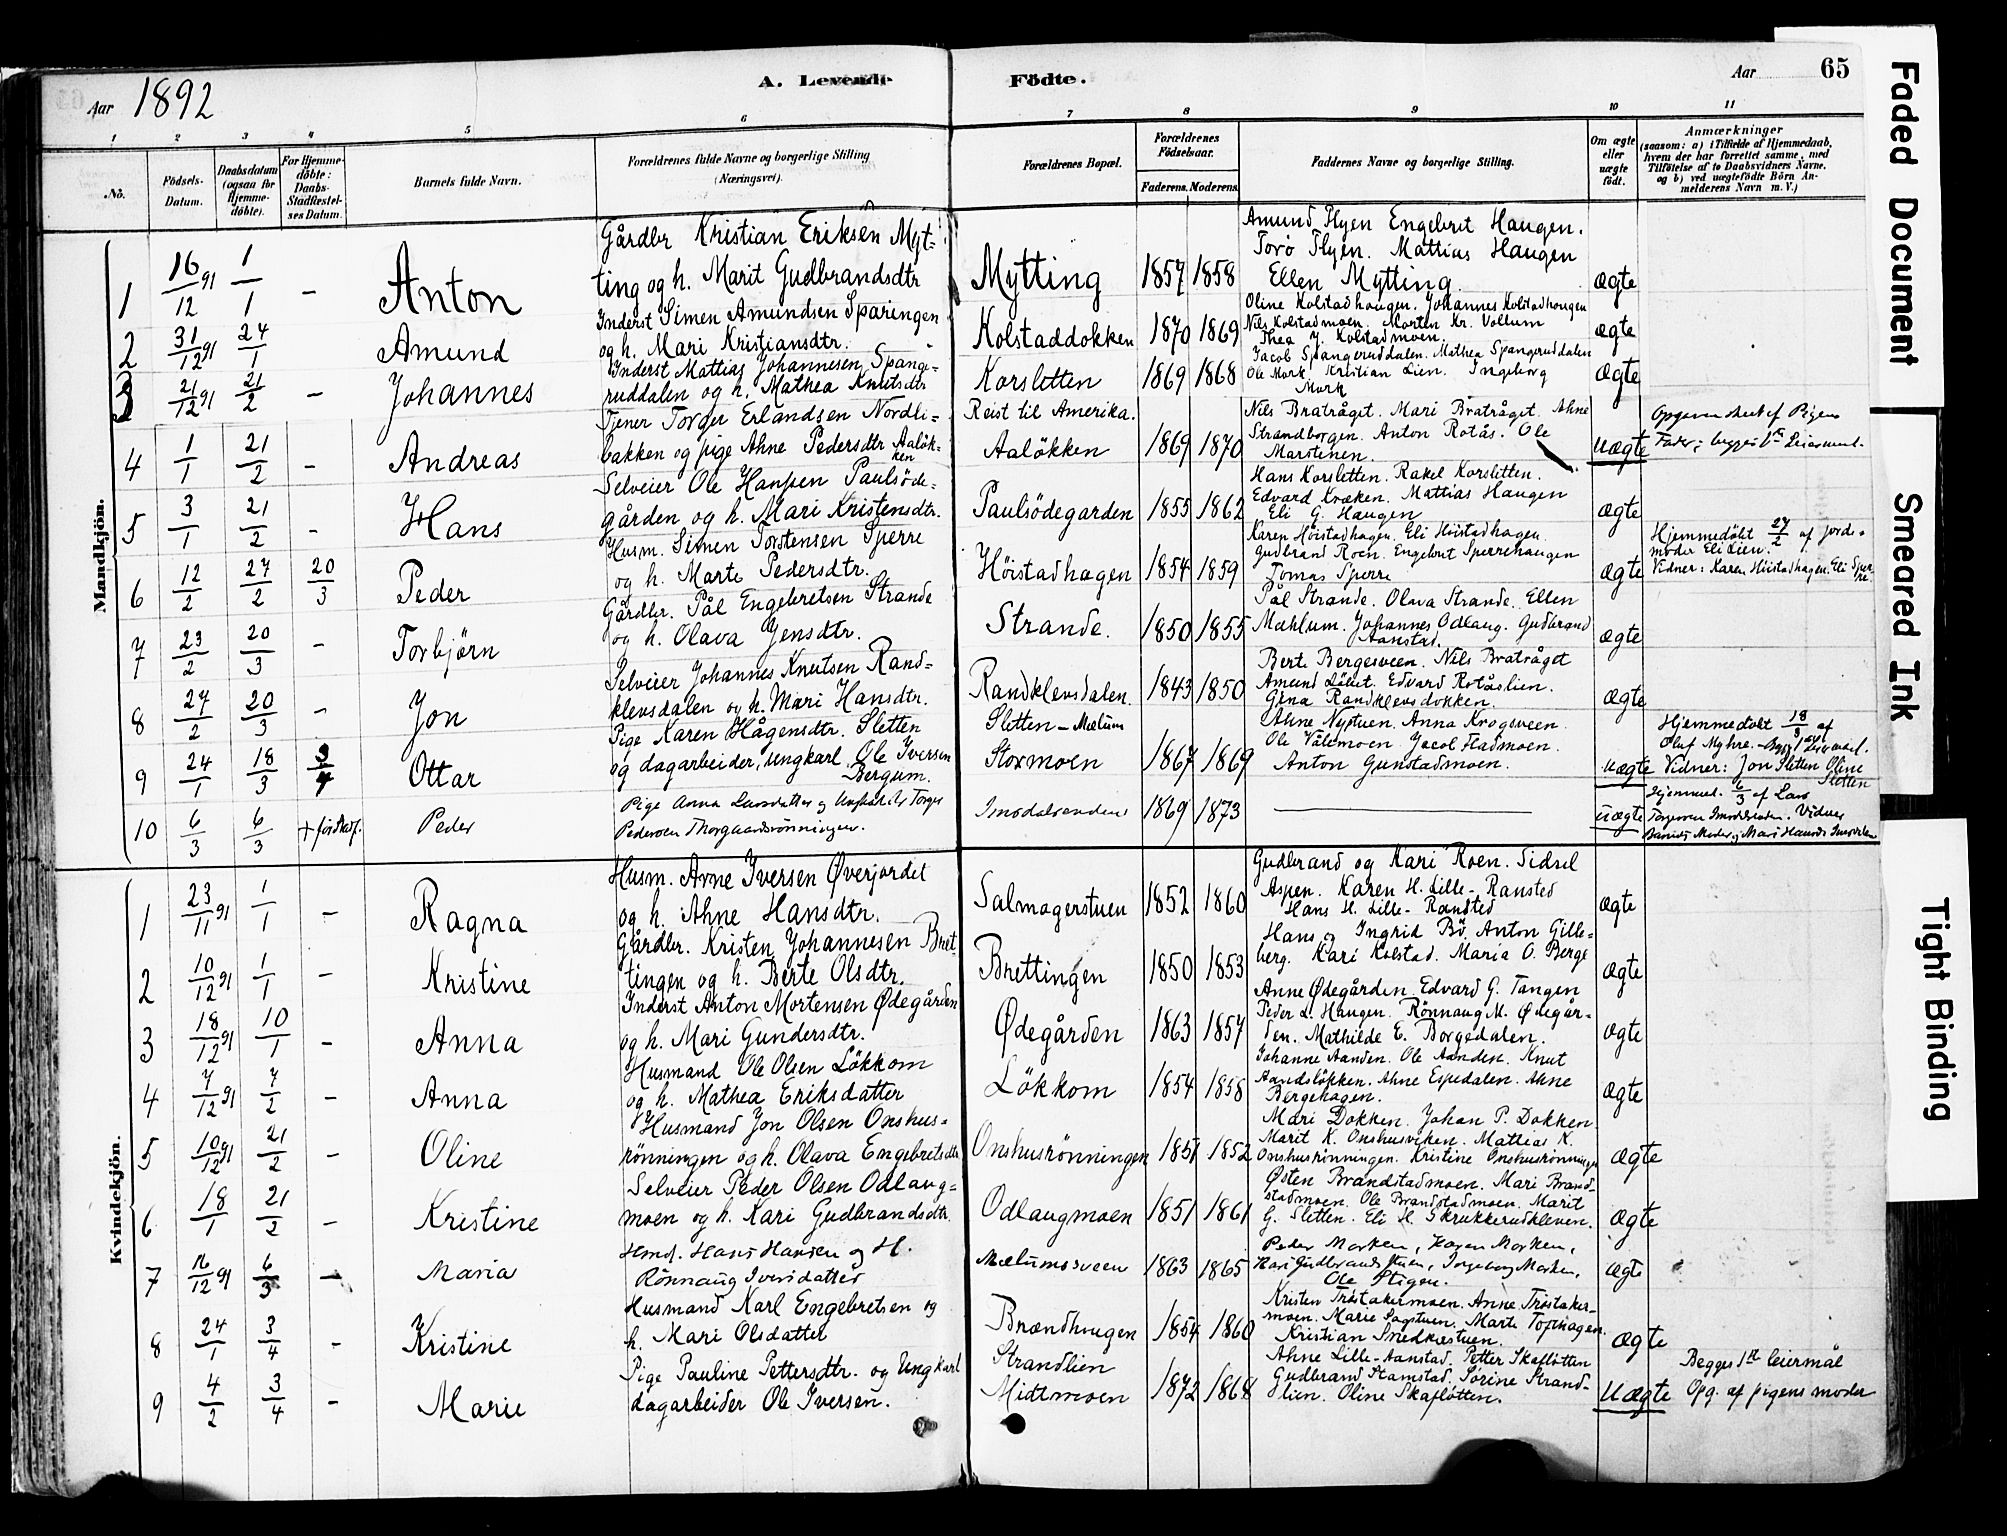 Aar 1892
A. Levende Födte.
Aar 65
1 2 3 4 5 6 7 8 9 10 11
No.
Födsels-Datum.
Daabsdatum (ogsaa for Hjemme-döbte).
For Hjemme-döbte: Daabs-Stadfæstel-ses Datum.
Barnets fulde Navn.
Forældrenes fulde Navne og borgerlige Stilling (Næringsvei).
Forældrenes Bopæl.
Forældrenes Födselsaar.
Faderens. Moderens.
Faddernes Navne og borgerlige Stilling.
Om ægte eller uægte födt.
Anmærkninger
(saasom: a) i Tilfælde af Hjemmedaab, hvem der har forrettet samme, med Tilföielse af to Daabsvidners Navne, og b) ved uægtefödte Börn An-melderens Navn m. V.)
Mandkjön.
1 16/12 91 1/1 – Anton
Gårdbr Kristian Eriksen Myt-
ting og h. Marit Gudbrandsdtr
Mytting 1857 1858
Amund Flyen Engebret Haugen.
Torö Flyen. Mattias Haugen
Ellen Mytting.
ægte
2 31/12 91 24/1 Amund
Inderst Simen Amundsen Sparingen
og h. Mari Kristiansdtr.
Kolstaddokken 1870 1869
Oline Kolstadhaugen. Johannes Kolstadhaugen
Nils Kolstadmoen. Morten Kr. Vollum
Thea J. Kolstadmoen.
ægte
3 21/12 91 21/2 – Johannes
Inderst Mattias Johannesen Spange-
ruddalen og h. Mathea Knutsdtr
Korsletten 1869 1868
Jacob Spangeruddalen. Mathea Spangeruddalen
Ole Mork, Kristian Lien. Ingeborg
Mork
ægte
4 1/1 21/2 – Andreas
Tjener Torger Erlandsen Nordli-
bakken og pige Ahne Pedersdtr Aalök-
ken
Reist til Amerika.
Aalökken 1869 1870
Nils Bratråget. Mari Bratråget. Ahne
Strandborgen. Anton Rotås. Ole
Marstenen.
uægte
5 3/1 21/2 – Hans
Selveier Ole Hansen Paulsöde-
gården og h. Mari Kristensdtr.
Paulsödegarden 1855 1862
Hans Korsletten. Rakel Korsletten.
Edvard Kræken. Mattias Haugen
Eli G. Haugen
ægte
6 12/2 27/2 20/3 Peder
Husm. Simen Torstensen Sperre
og h. Marte Pedersdtr.
Höistadhagen 1854 1859
Karen Höistadhagen. Eli Höistadhagen.
Gudbrand Roen. Engebret Sperrehaugen
Tomas Sperre
ægte
Hjemmedöbt 27/2 af jorde-
moder Eli Lien.
Vidner: Karen Höistadhagen. Eli Sper-
re
7 23/2 20/3 – Torbjørn
Gårdbr. Pål Engebretsen Strande
og h. Olava Jensdtr.
Strande. 1850 1855
Pål Strande. Olava Strande. Ellen
Mæhlum. Johannes Odlaug. Gudbrand
Aanstad.
ægte
8 27/2 20/3 – Jon
Selveier Johannes Knutsen Rand-
klevsdalen og h. Mari Hansdtr.
Randklevsdalen. 1843 1850
Berte Bergesveen. Nils Bratråget
Amund Edvard Rotåslien.
Gina Randklevsdokken.
ægte
9 24/1 18/3 3/4 Ottar
Pige Karen Hågensdtr. Sletten
og dagarbeider, ungkarl Ole Iversen
Bergum.
Sletten – Mælum
Stormoen 1867 1869
Ahne Nystuen. Anna Krogsveen.
Ole Vålemoen Jacob Fladmoen.
Anton Gunstadmoen.
uægte
Hjemmedöbt 18/3 af
Oluf Myhre.
Vidner: Jon Sletten Oline
Sletten
10 6/3 6/3 Peder
Pige Anna Larsdatter og Torger
Pedersen Thorgaardsrönningen.
1869 1873
uægte
Hjemmed. 6/3 af Lars
Kvindekjön.
1 23/11 91 1/1 – Ragna
Husm. Arne Iversen Øverjordet
og h. Ahne Hansdtr.
Salmagerstuen 1852 1860
Gudbrand og Kari Roen. Sidsel
Aspen. Karen H. Lille-Ransted
Hans H. Lille-Randsted
ægte
2 10/12 91 1/1 – Kristine
Gårdbr. Kristen Johannesen Bret-
tingen og h. Berte Olsdtr.
Brettingen 1850 1853
Hans og Ingrid Bö. Anton Gille-
berg. Kari Kolstad. Maria O. Berge
ægte
3 18/12 91 10/1 – Anna
Inderst Anton Mortensen Ødegården
og h. Mari Gundersdtr.
Ødegården 1863 1857
Anne Ødegården Edvard G. Tangen
Peder L. Haugen. Rönnaug M. Ødegår-
den. Mathilde E. Borgedalen.
ægte
4 7/12 91 7/2 – Anna
Husmand Ole Olsen Lökkom
og h. Mathea Eriksdatter
Lökkom 1854 1858
Johanne Aanden. Ole Aanden. Knut
Aandslökken. Ahne Espedalen. Ahne
Bergehagen.
ægte
5 10/12 91 21/2 – Oline
Husmand Jon Olsen Onshus-
rönningen og h. Olava Engebretsdtr
Onshusrönningen 1851 1852
Mari Dokken. Johan P. Dokken.
Marit K. Onshusviken. Mathias K.
Onshusrönningen. Kristine Onshusrönningen
ægte
6 18/1 21/2 – Kristine
Selveier Peder Olsen Odlaug-
moen og h. Kari Gudbrandsdtr.
Odlaugmoen 1851 1861
Østen Brandstadmoen. Mari Brand-
stadmoen. Ole Brandstadmoen. Marit
G. Sletten. Eli H. Skrukkerudkleven.
ægte
7 16/12 91 6/3 – Maria
Hmd. Hans Hansen og H.
Rönnaug Iversdatter
Mælumsveen 1863 1865
Peder Morken, Karen Morken,
Kari Gudbrandsstuen, Ingeborg Morken,
Ole Stigen.
ægte
8 24/1 3/4 – Kristine
Husmand Karl Engebretsen og
h. Mari Olsdatter
Brændhaugen 1854 1860
Kristen Tröstakermoen. Anne Tröstaker-
moen. Marie Marte Tofthagen.
Kristian Smedkæstuen.
ægte
9 4/2 3/4 – Marie
Pige Pauline Pettersdtr. og Ungkarl
dagarbeider Ole Iversen.
Strandlien
Midtmoen 1872 1868
Ahne Lille-Aanstad. Petter Skaflötten
Gudbrand Stamstad. Sörine Strand-
lien. Oline Skaflötten.
Uægte
Begges 1ste leiermål
Opg. af pigens moder
Faded Document
Smeared Ink
Tight Binding